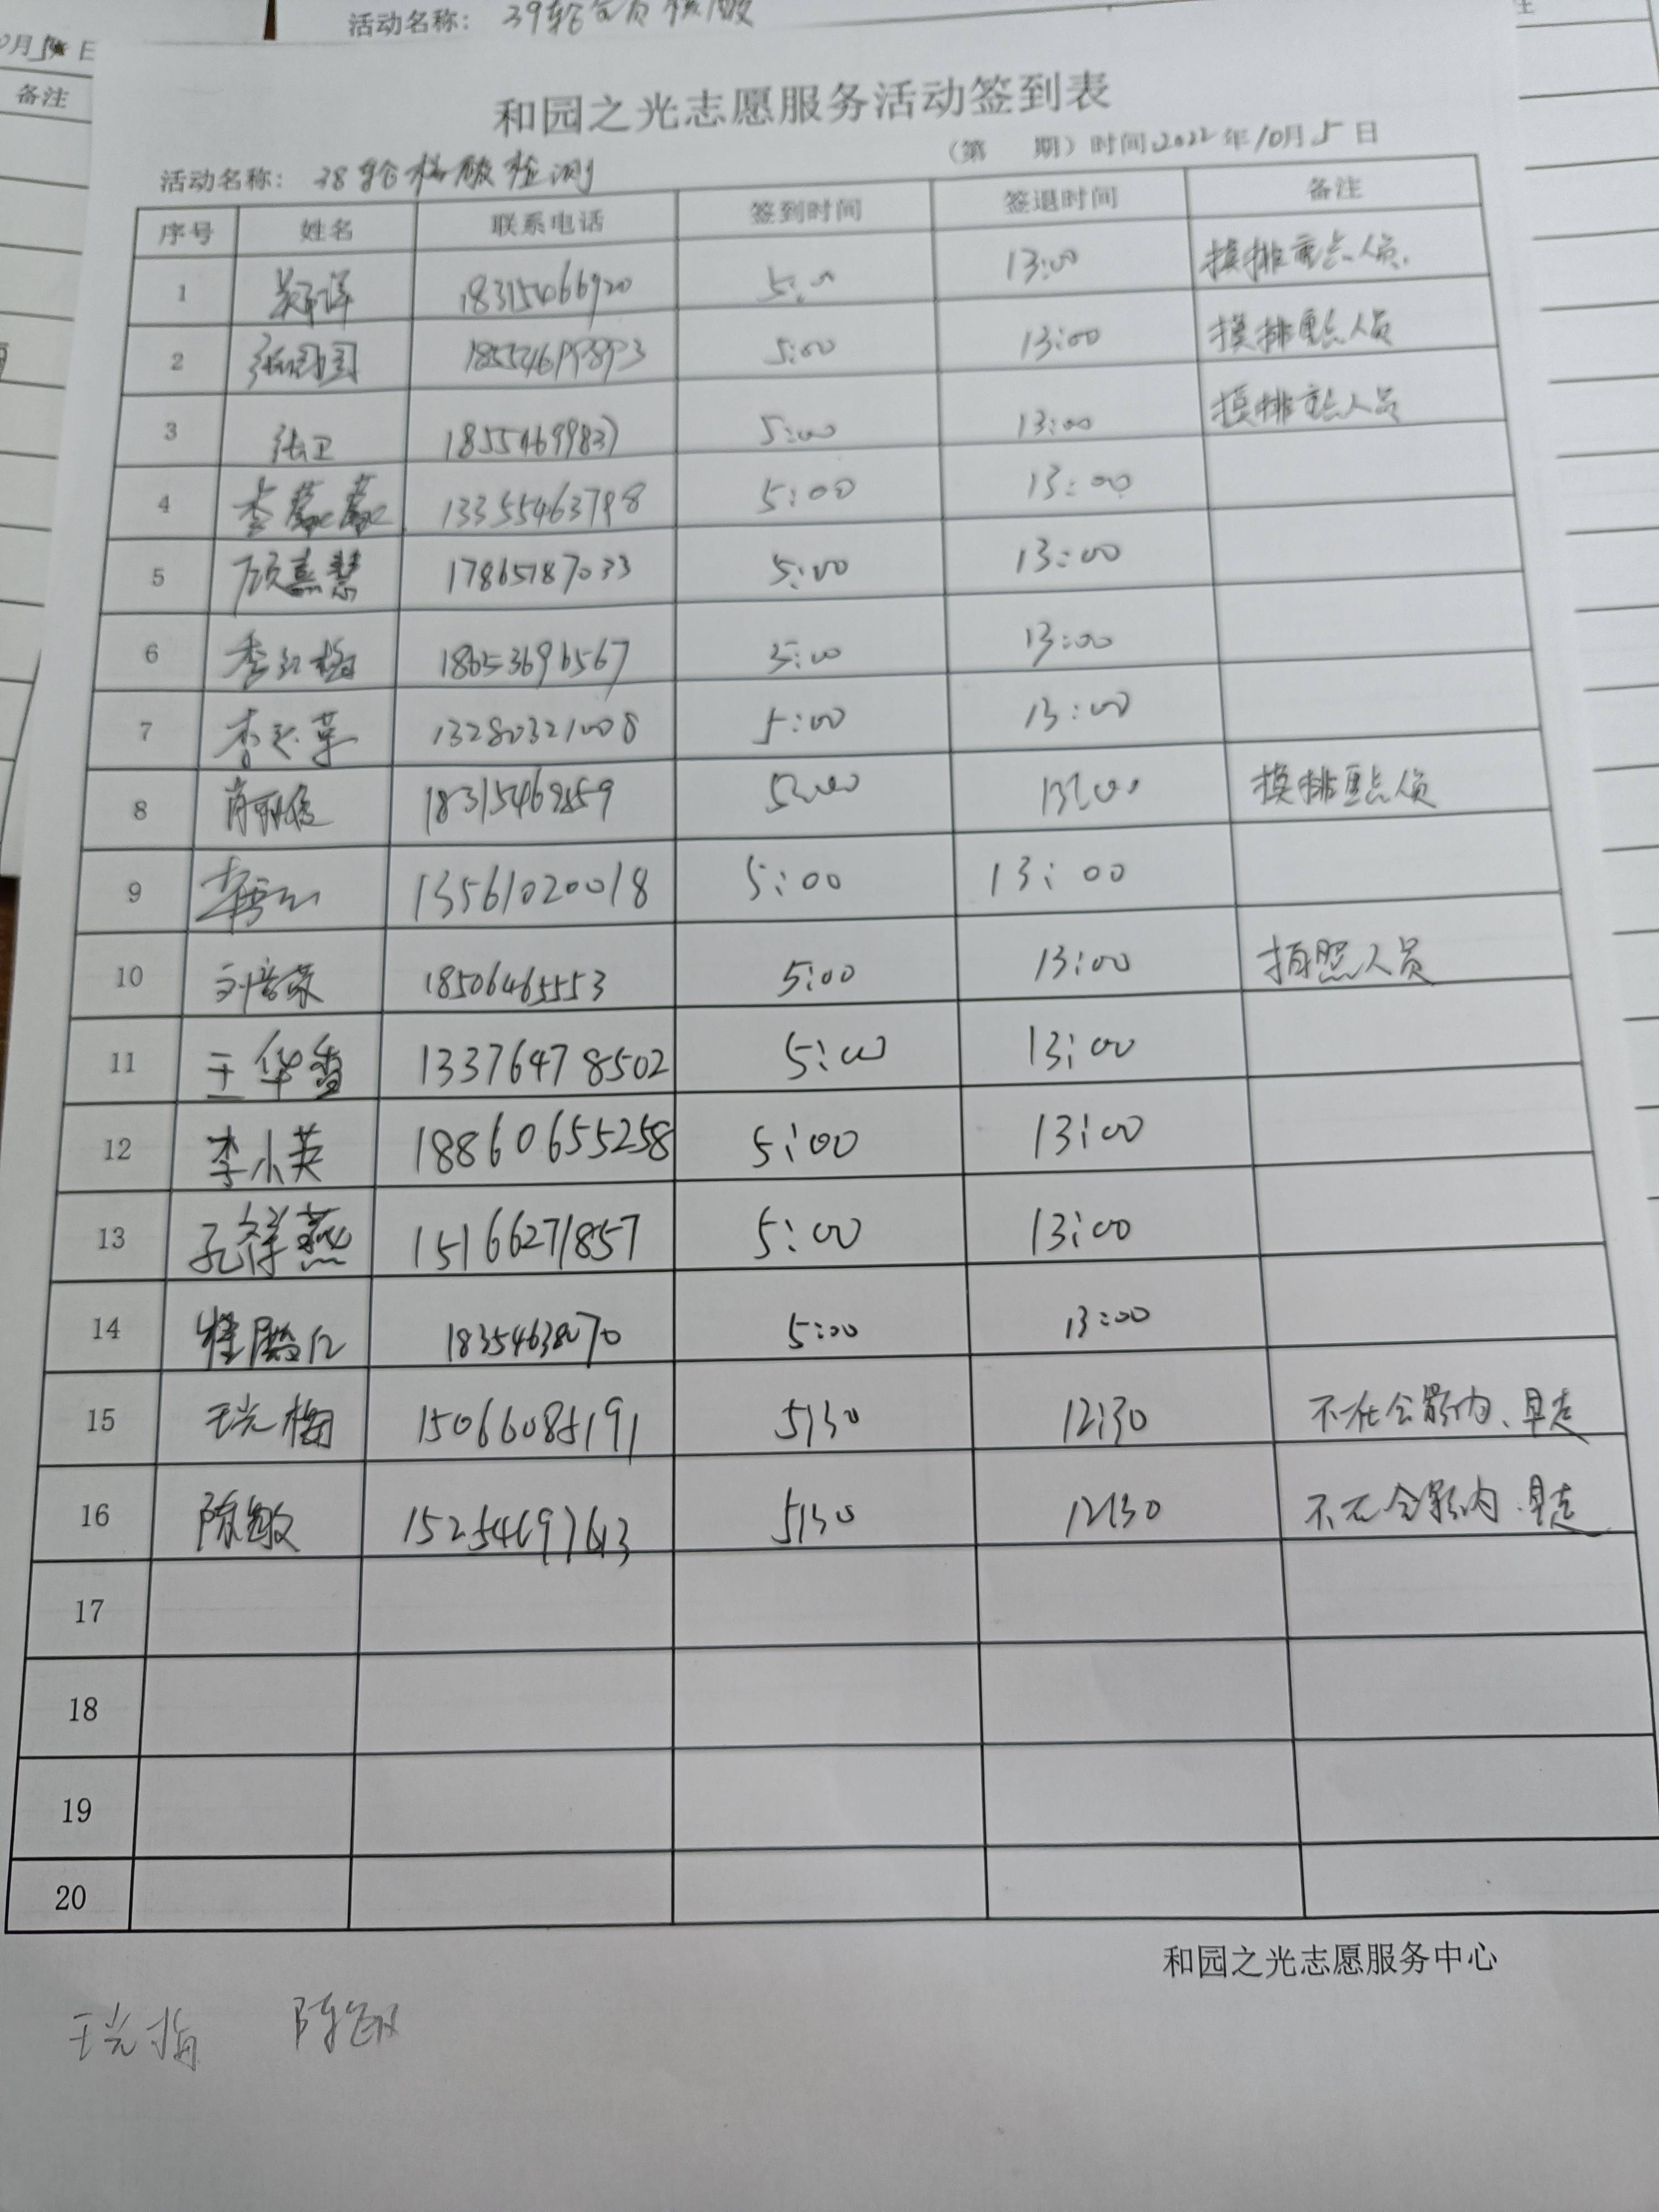 活动名称：39轮
月5日
备注
和园之光志愿服务活动签到表
（第 期）时间2022年10月5日
活动名称：38轮核酸检测
序号 姓名 联系电话 签到时间 签退时间 备注
1 18315466920 5:00 13:00 摸排重点人员.
2 5:00 13:00 摸排重点人员
3 张卫 18554699837 5:00 13:00 摸排重点人员
4 13355463798 5:00 13:00
5 顾熹慧 17865187033 5:00 13:00
6 李红梅 18653696567 5:00 13:00
7 13280321008 5:00 13:00
8 肖丽俊 18315469859 5:00 13:00 摸排重点人员
9 13561020018 5:00 13:00
10 刘营荣 18506465553 5:00 13:00 拍照人员
11 王华香 13376478502 5:00 13:00
12 李小英 18860655258 5:00 13:00
13 孔祥燕 15166271857 5:00 13:00
14 18354638070 5:00 13:00
15 王光梅 15066085191 5:30 12:30 不在合影内、早走
16 陈敏 15254697613 5:30 12:30 不在合影内、早走
17
18
19
20
和园之光志愿服务中心
王光梅 陈敏